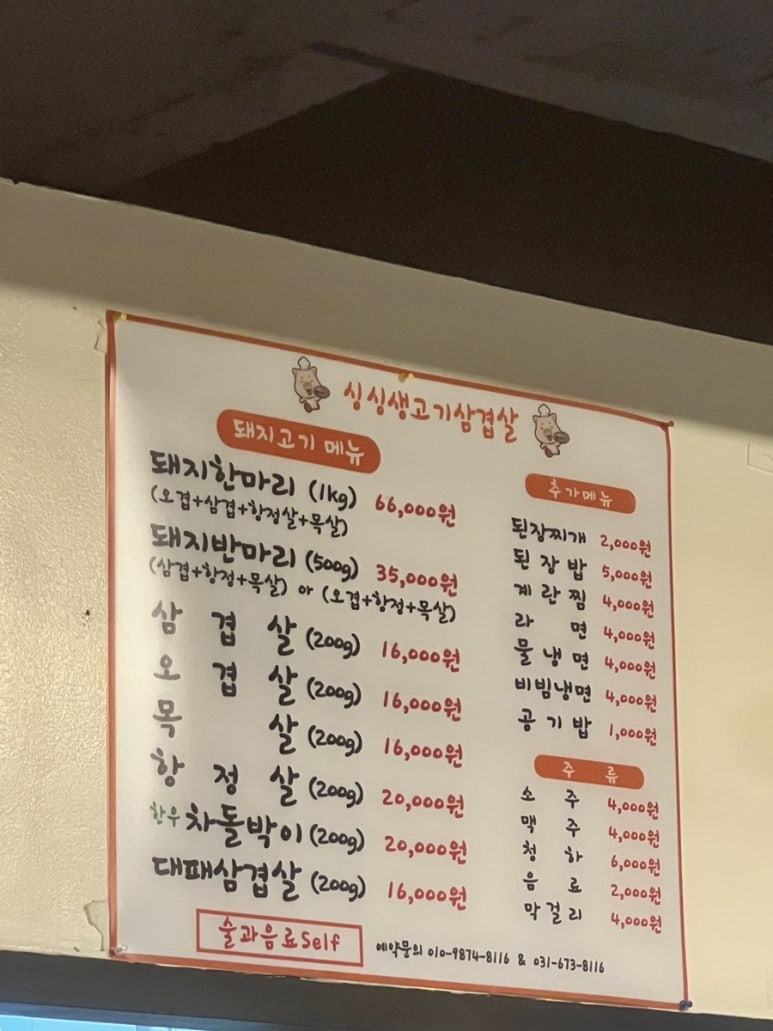 싱싱생고기삼겹살
돼지고기 메뉴
돼지한마리 (1kg) 66,000원
(오겹+삼겹+항정살+목살)
돼지반마리 (500g) 35,000원
(삼겹+항정+목살) or (오겹+항정+목살)
삼 겹 살 (200g) 16,000원
오 겹 살 (200g) 16,000원
목 살 (200g) 16,000원
항 정 살 (200g) 20,000원
한우 차돌박이 (200g) 20,000원
대패삼겹살 (200g) 16,000원
추가메뉴
된장찌개 2,000원
된 장 밥 5,000원
계 란 찜 4,000원
라 면 4,000원
물 냉 면 4,000원
비빔냉면 4,000원
공 기 밥 1,000원
주 류
소 주 4,000원
맥 주 4,000원
청 하 6,000원
음 료 2,000원
막걸리 4,000원
술과음료Self
예약문의 010-9874-8116 & 031-673-8116